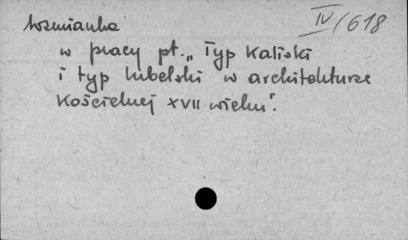 IV/618
Wzmianka
w pracy pt. „Typ Kaliski
i typ lubelski w architekturze
Kościelnej XVII wieku".